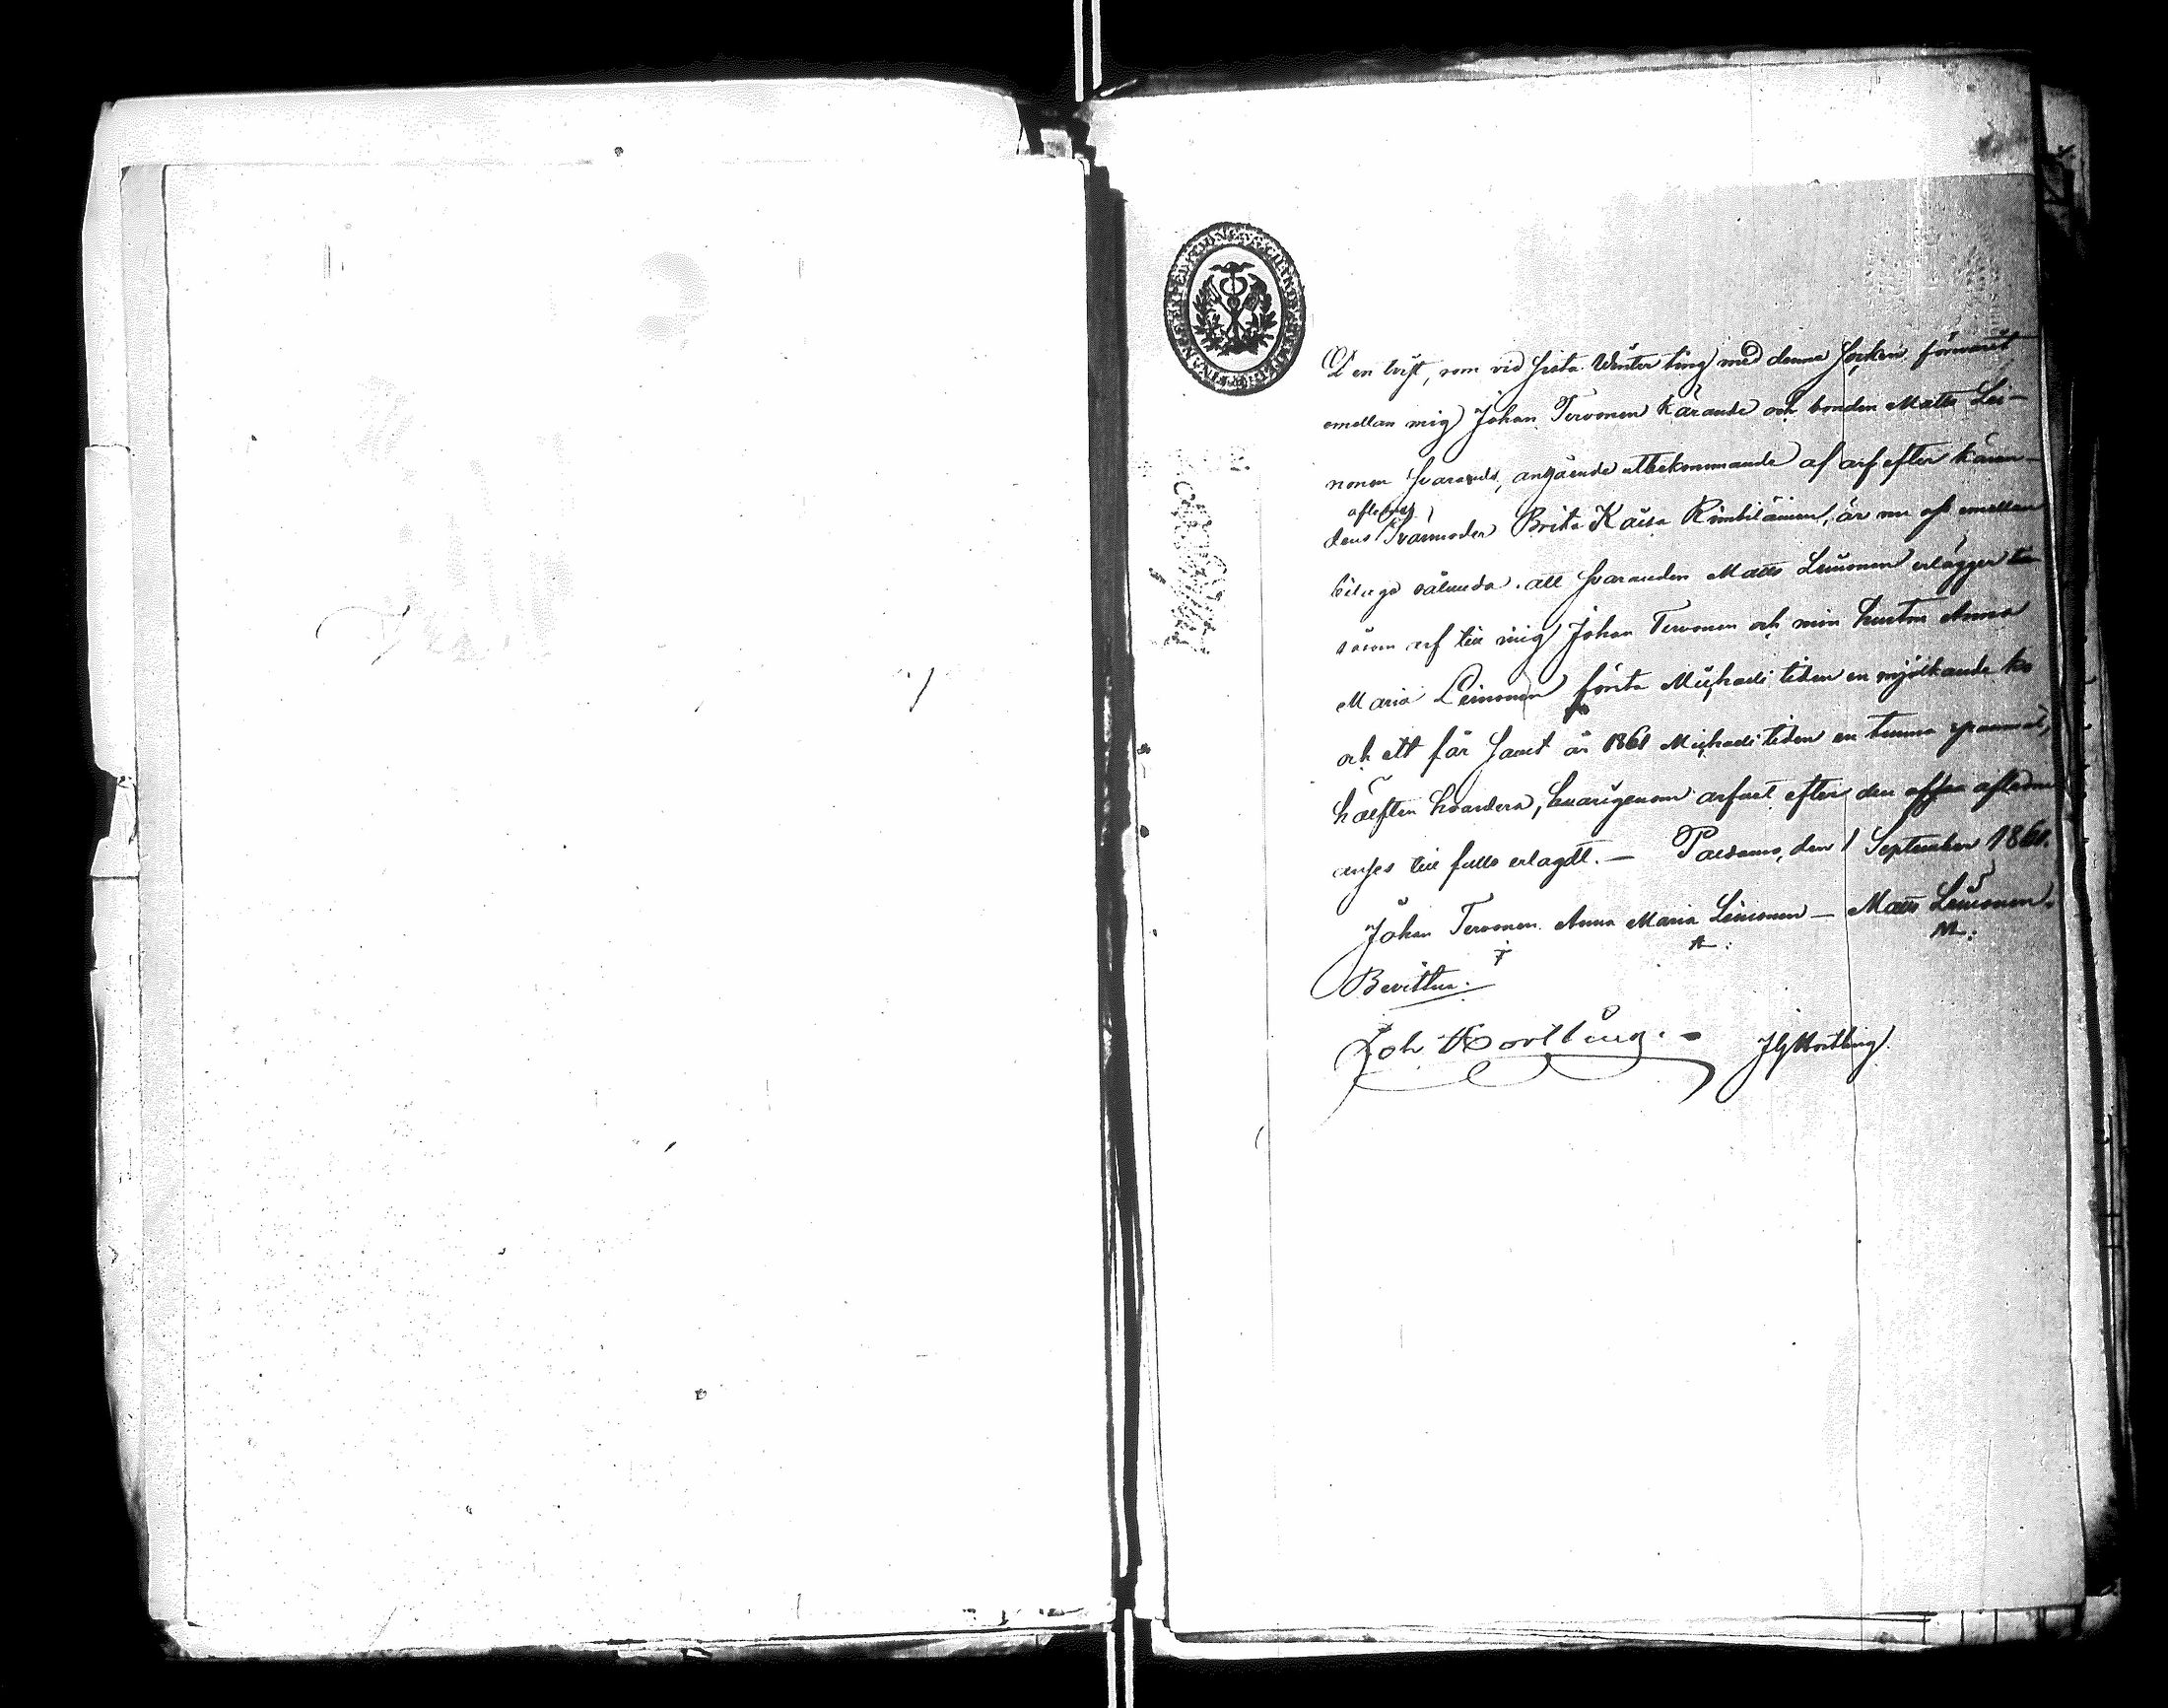 Den tvist, som vid sista Winter ting med denna Socken förevarit
emellan mig Johan Tervonen Kärande och bonden Matts Lei-
nonen Svarande, angående utbekommande af arf efter käran-
aflidna
dens Svärmoder Brita Kaisa Kimbiläinen, är nu oss emellan
bilagd sålunda att Svaranden Matts Leinonen erlägger
såsom arf till mig Johan Tervonen och min hustru Anna
Maria Leinonen första Michaeli tiden en mjölkande ko
och ett får samt år 1861 Michaeli tiden en tunna spannmål,
hälften hvardera, hvarigenom arfvet efter den aflidna
anses till fullo erlagdt. — Paldamo, den 1 September 1860.
Johan Tervonen. Anna Maria Leinonen — Matts Leinonen.
A: M:
Bevittna:
Joh Kortling. JG Kortling